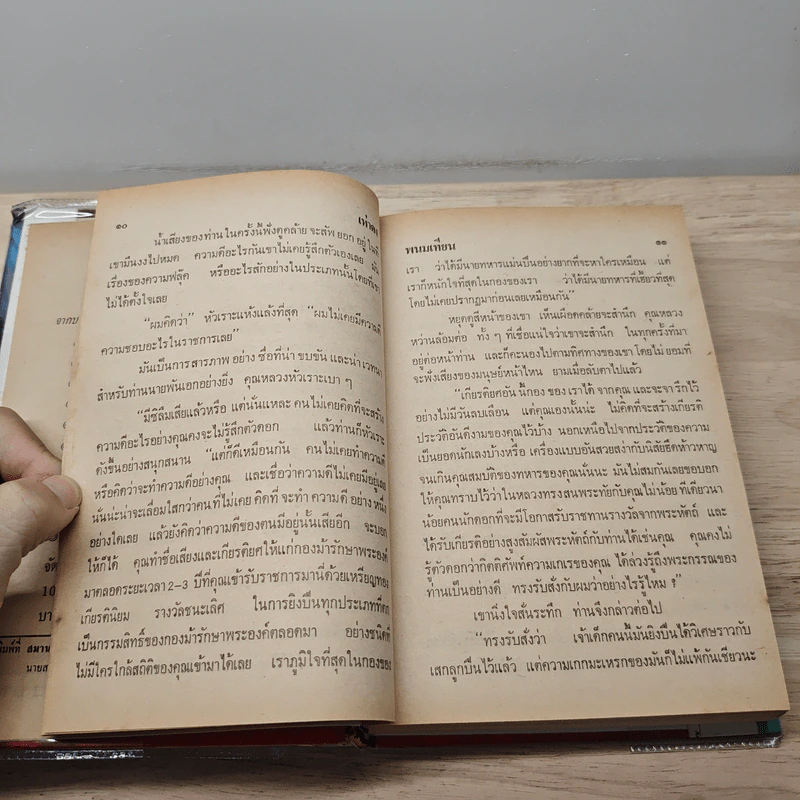 ๑๐
น้ำเสียงของท่านในครั้งนี้ฟังดูคล้าย จะสัพ ยอก อยู่ ในที
เขามึนงงไปหมด ความดีอะไรกันเขาไม่เคยรู้สึกตัวเองเลย
เรื่องของความฟลุ๊ค หรืออะไรสักอย่างในประเภทนั้นโดยที่เขา
ไม่ได้ตั้งใจเลย
“ผมคิดว่า” หัวเราะแห้งแล้งที่สุด “ผมไม่เคยมีความดี
ความชอบอะไรในราชการเลย”
มันเป็นการสารภาพ อย่าง ซื่อที่น่า ขบขัน และน่า เวทนา
สำหรับท่านนายพันเอกอย่างยิ่ง คุณหลวงหัวเราะเบา ๆ
“มีซิลืมเสียแล้วหรือ แต่นั่นแหละ คนไม่เคยคิดที่จะสร้าง
ความดีอะไรอย่างคุณคงจะไม่รู้สึกตัวดอก แล้วท่านก็หัวเราะ
ดังขึ้นอย่างสนุกสนาน “แต่ก็ดีเหมือนกัน คนไม่เคยทำความดี
หรือคิดว่าจะทำความดีอย่างคุณ และเชื่อว่าความดีไม่เคยมีอยู่เลย
นั่นน่ะน่าจะเลื่อมใสกว่าคน ที่ไม่เคย คิดที่ จะทำ ความ ดี อย่าง หนึ่ง
อย่างใดเลย แล้วยังคิดว่าความดีของตนมีอยู่นั้นเสียอีก จะบอก
ให้ก็ได้ คุณทำชื่อเสียงและเกียรติยศให้แก่กองม้ารักษาพระองค์
มาตลอดระยะเวลา 2-3 ปีที่คุณเข้ารับราชการมานี่ด้วยเหรียญทอง
เกียรตินิยม รางวัลชนะเลิศ ในการยิงปืนทุกประเภทที่ตก
เป็นกรรมสิทธิ์ของกองม้ารักษาพระองค์ตลอดมา อย่างชนิดที่
ไม่มีใครใกล้สถิติของคุณเข้ามาได้เลย เราภูมิใจที่สุดในกองของ
พนมเทียน
๑๑
เรา ว่าได้มีนายทหารแม่นปืนอย่างยากที่จะหาใครเหมือน แต่
เราก็หนักใจที่สุดในกองของเรา ว่าได้มีนายทหารที่เฮี้ยวที่สุด
โดยไม่เคยปรากฏมาก่อนเลยเหมือนกัน”
หยุดดูสีหน้าของเขา เห็นเผือดคล้ายจะสำนึก คุณหลวง
หว่านล้อมต่อ ทั้ง ๆ ที่เชื่อแน่ใจว่าเขาจะสำนึก ในทุกครั้งที่มา
อยู่ต่อหน้าท่าน และก็คะนองไปตามทิศทางของเขา โดย ไม่ ยอมที่
จะฟังเสียงของมนุษย์หน้าไหน ยามเมื่อลับตาไปแล้ว
“เกียรติยศอัน นี้กอง ของ เราได้ จาก คุณ และจะจา รึก ไว้
อย่างไม่มีวันลบเลือน แต่คุณเองนั้นน่ะ ไม่คิดที่จะสร้างเกียรติ
ประวัติอันดีงามของคุณไว้บ้าง นอกเหนือไปจากประวัติของความ
เป็นยอดนักเลงบ้างหรือ เครื่องแบบอันสวยสง่ากับนิสัยฮึดห้าวหาญ
จนเกินคุณสมบัติของทหารของคุณนั่นน่ะ มันไม่สมกันเลยขอบอก
ให้คุณทราบไว้ว่าในหลวงทรงสนพระทัยกับคุณไม่น้อย ทีเดียวนา
น้อยคนนักดอกที่จะมีโอกาสรับราชทานรางวัลจากพระหัตถ์ และ
ได้รับเกียรติอย่างสูงสัมผัสพระหัตถ์กับท่านได้เช่นคุณ คุณคงไม่
รู้ตัวดอกว่ากิตติศัพท์ความเกเรของคุณ ได้ล่วงรู้ถึงพระกรรณของ
ท่านเป็นอย่างดี ทรงรับสั่งกับผมว่าอย่างไรรู้ไหม ?”
เขานิ่งใจสั่นระทึก ท่านจึงกล่าวต่อไป
“ทรงรับสั่งว่า เจ้าเด็กคนนี้มันยิงปืนได้วิเศษราวกับ
เสกลูกปืนไว้แล้ว แต่ความเกกมะเหรกของมันก็ไม่แพ้กันเชียวนะ